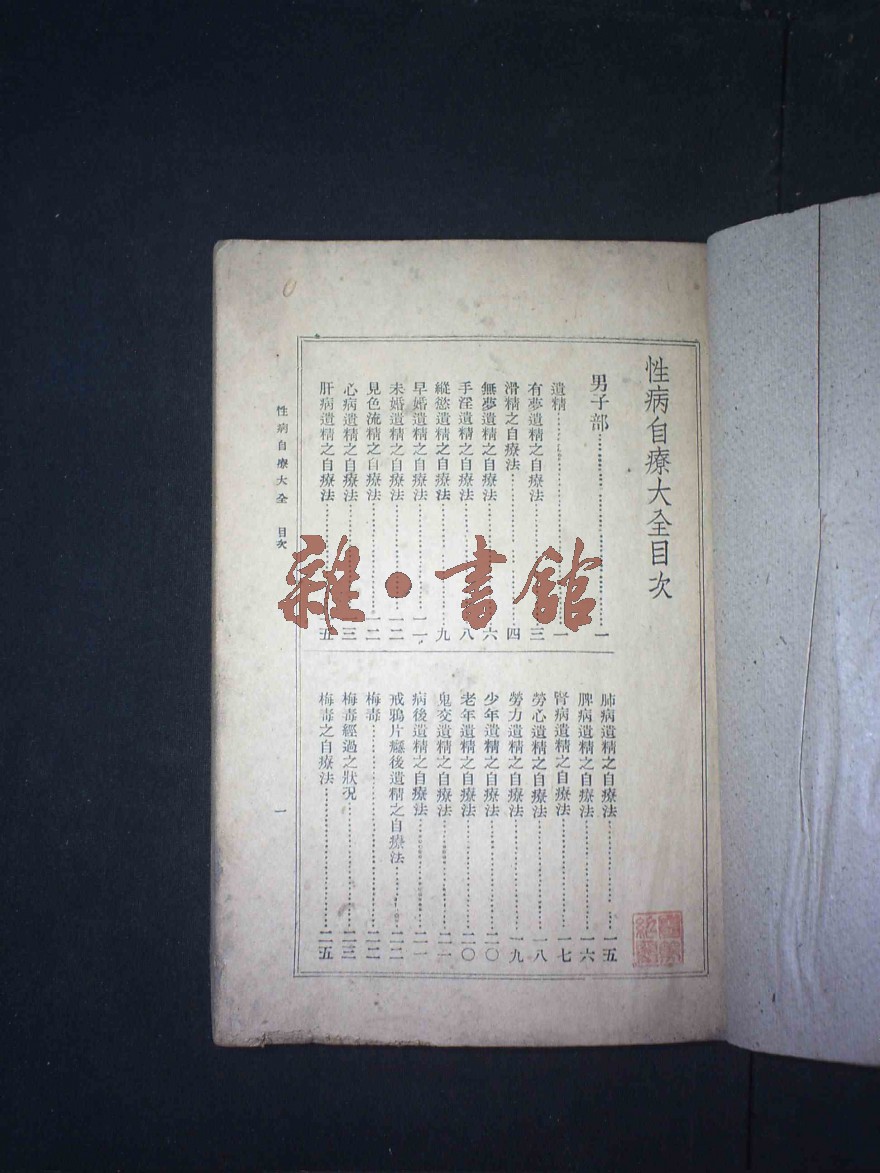 性病自療大全目次
男子部……一
遺精……一
有夢遺精之自療法……三
滑精之自療法……四
無夢遺精之自療法……六
手淫遺精之自療法……八
縱慾遺精之自療法……九
早婚遺精之自療法……一一
未婚遺精之自療法……一二
見色流精之自療法……一二
心病遺精之自療法……一三
肝病遺精之自療法……一五
肺病遺精之自療法……一五
脾病遺精之自療法……一六
腎病遺精之自療法……一七
勞心遺精之自療法……一八
勞力遺精之自療法……一九
少年遺精之自療法……二〇
老年遺精之自療法……二〇
鬼交遺精之自療法……二一
病後遺精之自療法……二一
戒鴉片癮後遺精之自療法……二二
梅毒……二二
梅毒經過之狀況……二三
梅毒之自療法……二五
性病自療大全 目次
一
雜·書館